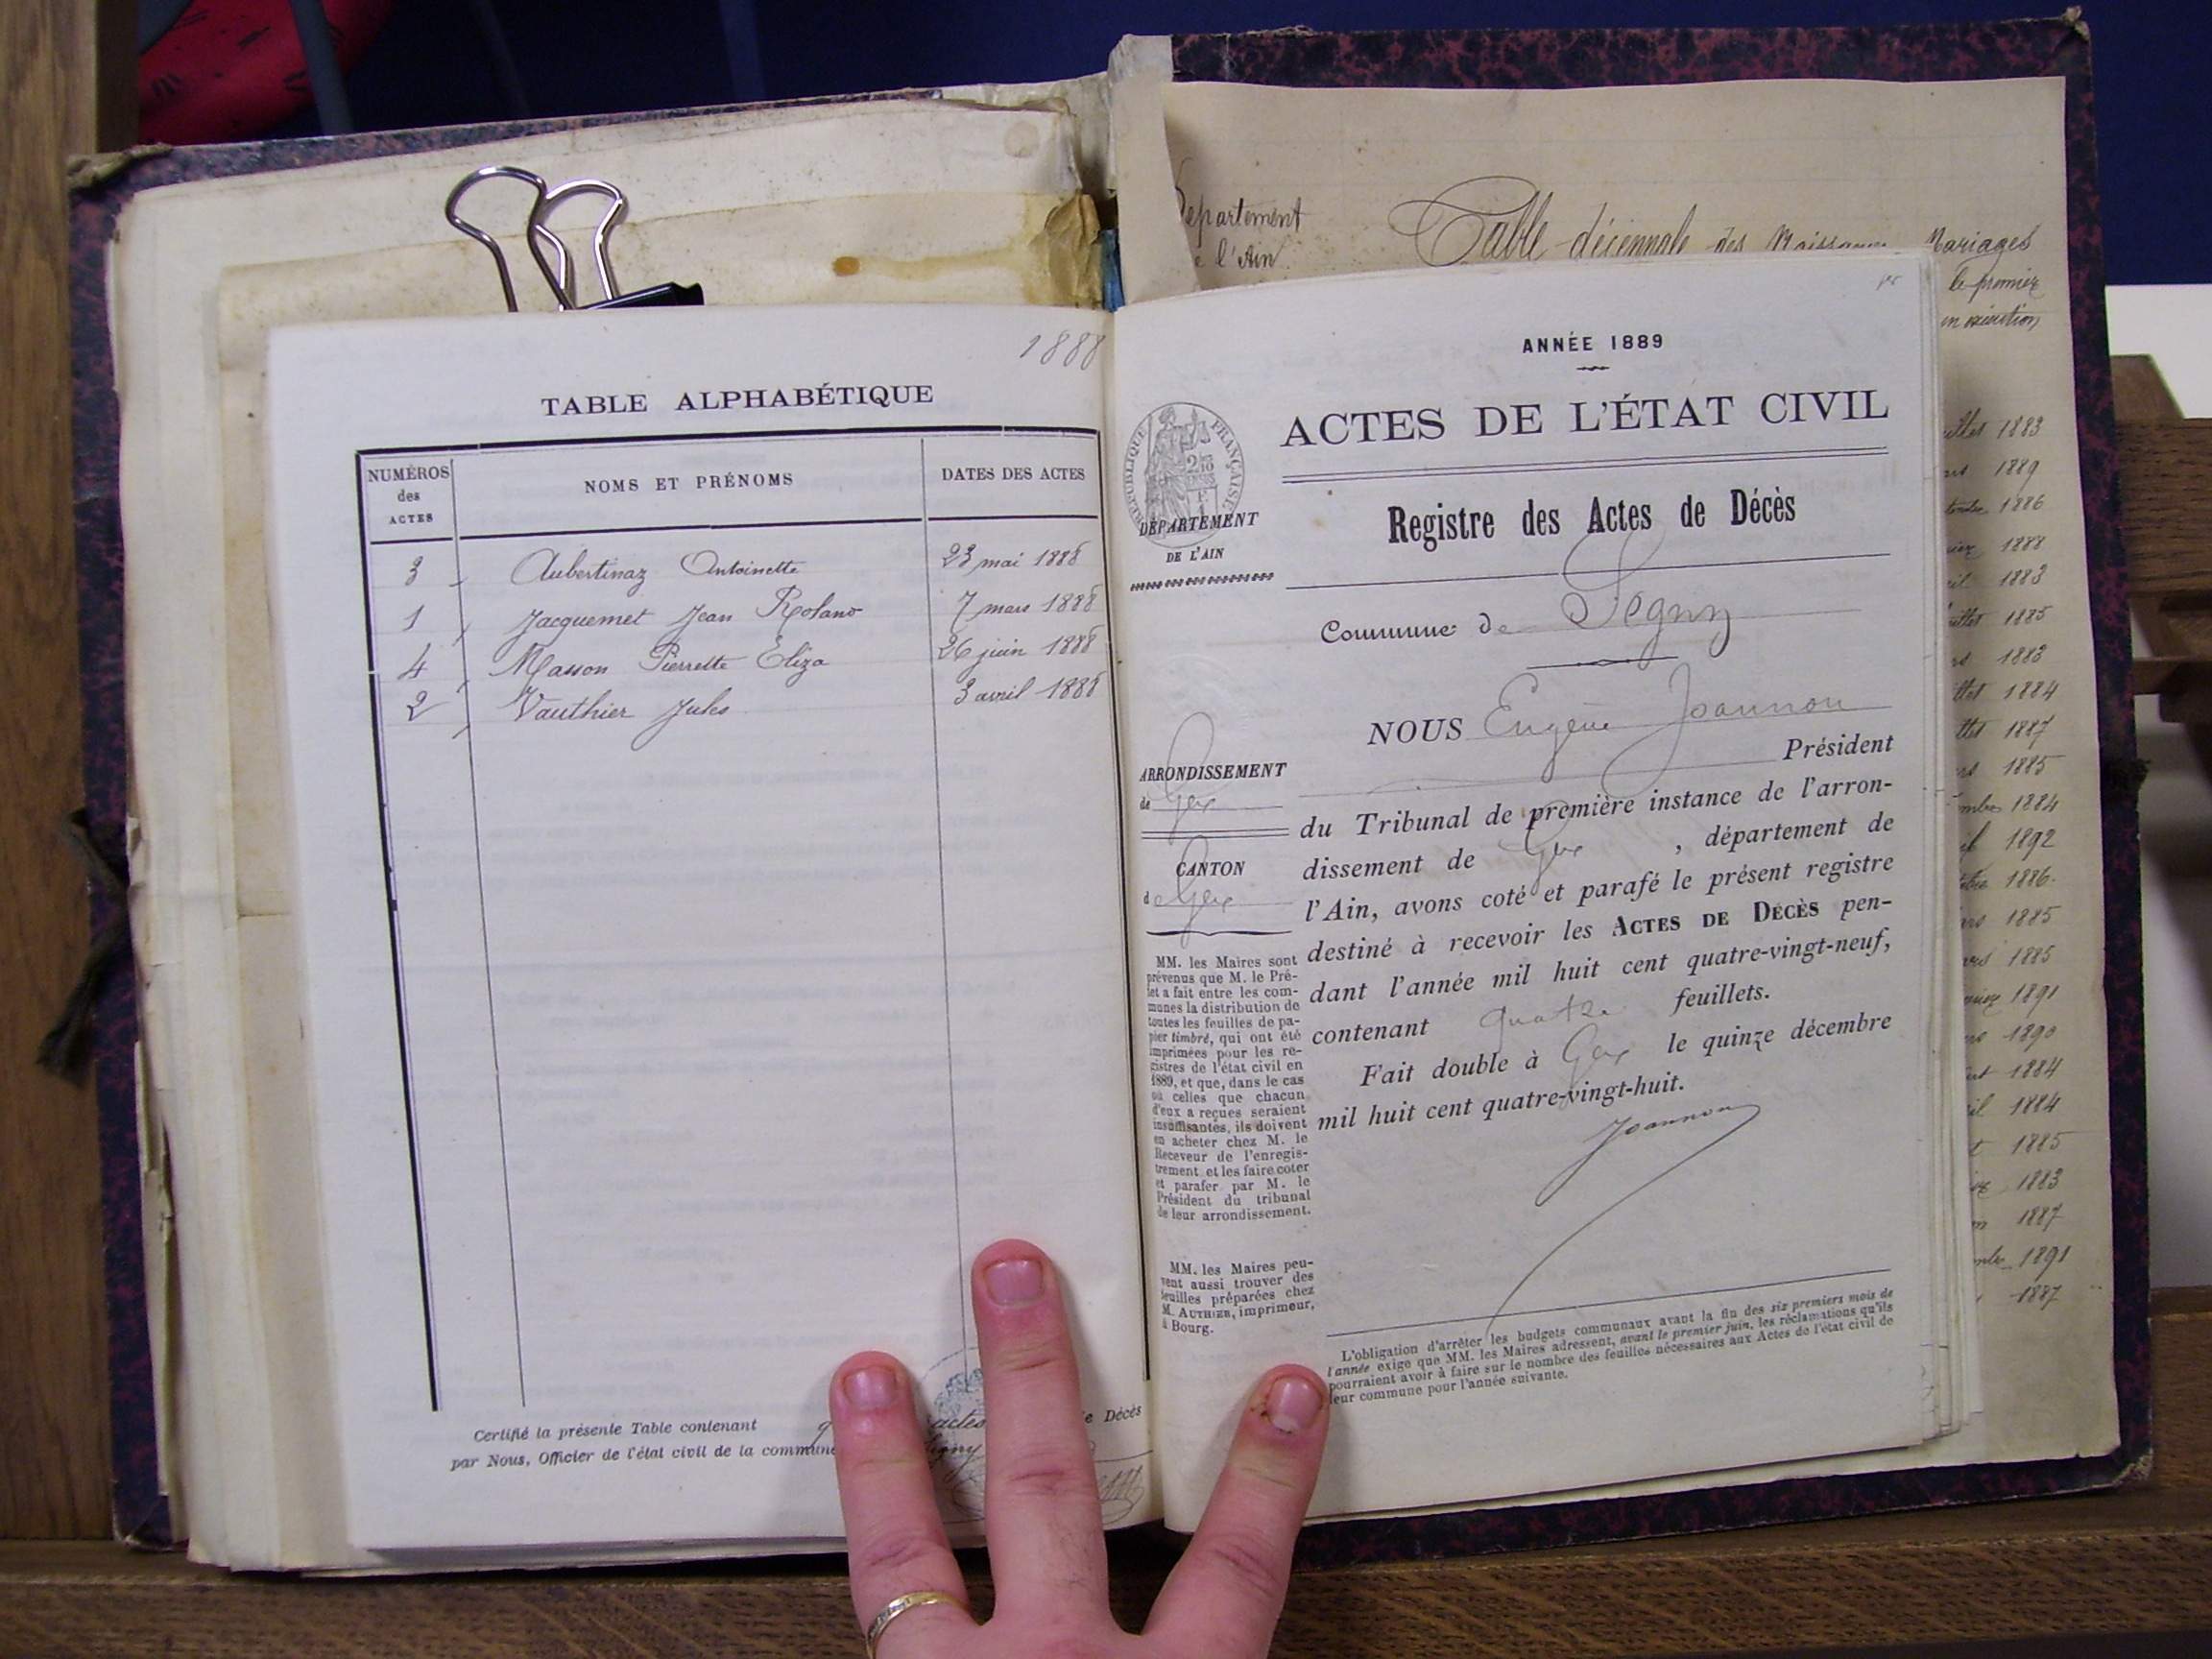 1888
TABLE ALPHABÉTIQUE
NUMÉROS
des
ACTES
NOMS ET PRÉNOMS
DATES DES ACTES
3 Aubertinaz Antoinette 23 mai 1888
1 Jacquemet Jean Roland 7 mars 1888
4 Masson Pierrette Eliza 26 juin 1888
2 Vauthier Jules 3 avril 1888
Certifié la présente Table contenant actes de Décès
par Nous, Officier de l'état civil de la commune
Département
de l'Ain
Table décennale des Naissances Mariages
le premier
en exécution
ANNÉE 1889
ACTES DE L'ÉTAT CIVIL
RÉPUBLIQUE FRANÇAISE
DÉPARTEMENT
DE L'AIN
Registre des Actes de Décès
Commune de Segny
ARRONDISSEMENT
de Gex
CANTON
de Gex
MM. les Maires sont
prévenus que M. le Pré-
fet a fait entre les com-
munes la distribution de
toutes les feuilles de pa-
pier timbré, qui ont été
imprimées pour les re-
gistres de l'état civil en
1889, et que, dans le cas
où celles que chacun
d'eux a reçues seraient
insuffisantes, ils doivent
en acheter chez M. le
Receveur de l'enregis-
trement et les faire coter
et parafer par M. le
Président du tribunal
de leur arrondissement.
MM. les Maires peu-
vent aussi trouver des
feuilles préparées chez
M. AUTHIER, imprimeur,
à Bourg.
NOUS Eugène Joannon
Président
du Tribunal de première instance de l'arron-
dissement de Gex , département de
l'Ain, avons coté et parafé le présent registre
destiné à recevoir les ACTES DE DÉCÈS pen-
dant l'année mil huit cent quatre-vingt-neuf,
contenant quatre feuillets.
Fait double à Gex le quinze décembre
mil huit cent quatre-vingt-huit.
Joannon
L'obligation d'arrêter les budgets communaux avant la fin des six premiers mois de
l'année exige que MM. les Maires adressent, avant le premier juin, les réclamations qu'ils
pourraient avoir à faire sur le nombre des feuilles nécessaires aux Actes de l'état civil de
leur commune pour l'année suivante.
1883
1889
1886
1888
1883
1885
1883
1884
1887
1885
1884
1892
1886
1885
1885
1891
1890
1884
1884
1885
1883
1887
1891
1887